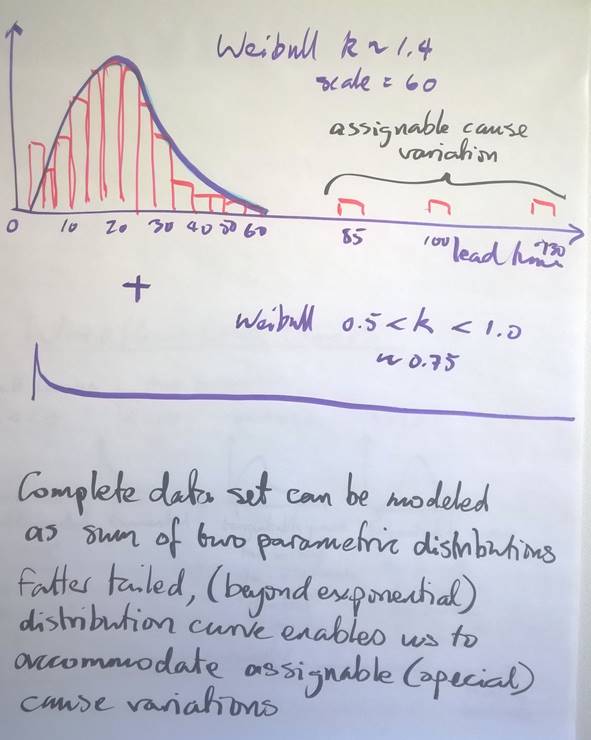 Weibull k ~ 1.4
scale = 60
assignable cause
variation
0 10 20 30 40 50 60 85 100 130
lead time
+
Weibull 0.5 < k < 1.0
~ 0.75
Complete data set can be modeled
as sum of two parametric distributions
Fatter tailed, (beyond exponential)
distribution curve enables us to
accommodate assignable (special)
cause variations